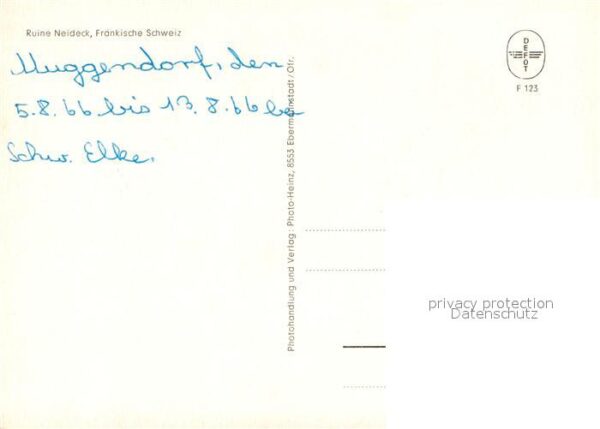 Ruine Neideck, Fränkische Schweiz
Muggendorf, den
5.8.66 bis 13.8.66 bei
Schw. Elke.
Photohandlung und Verlag: Photo-Heinz, 8553 Ebermannstadt/Ofr.
DEFOT
F 123
privacy protection
Datenschutz